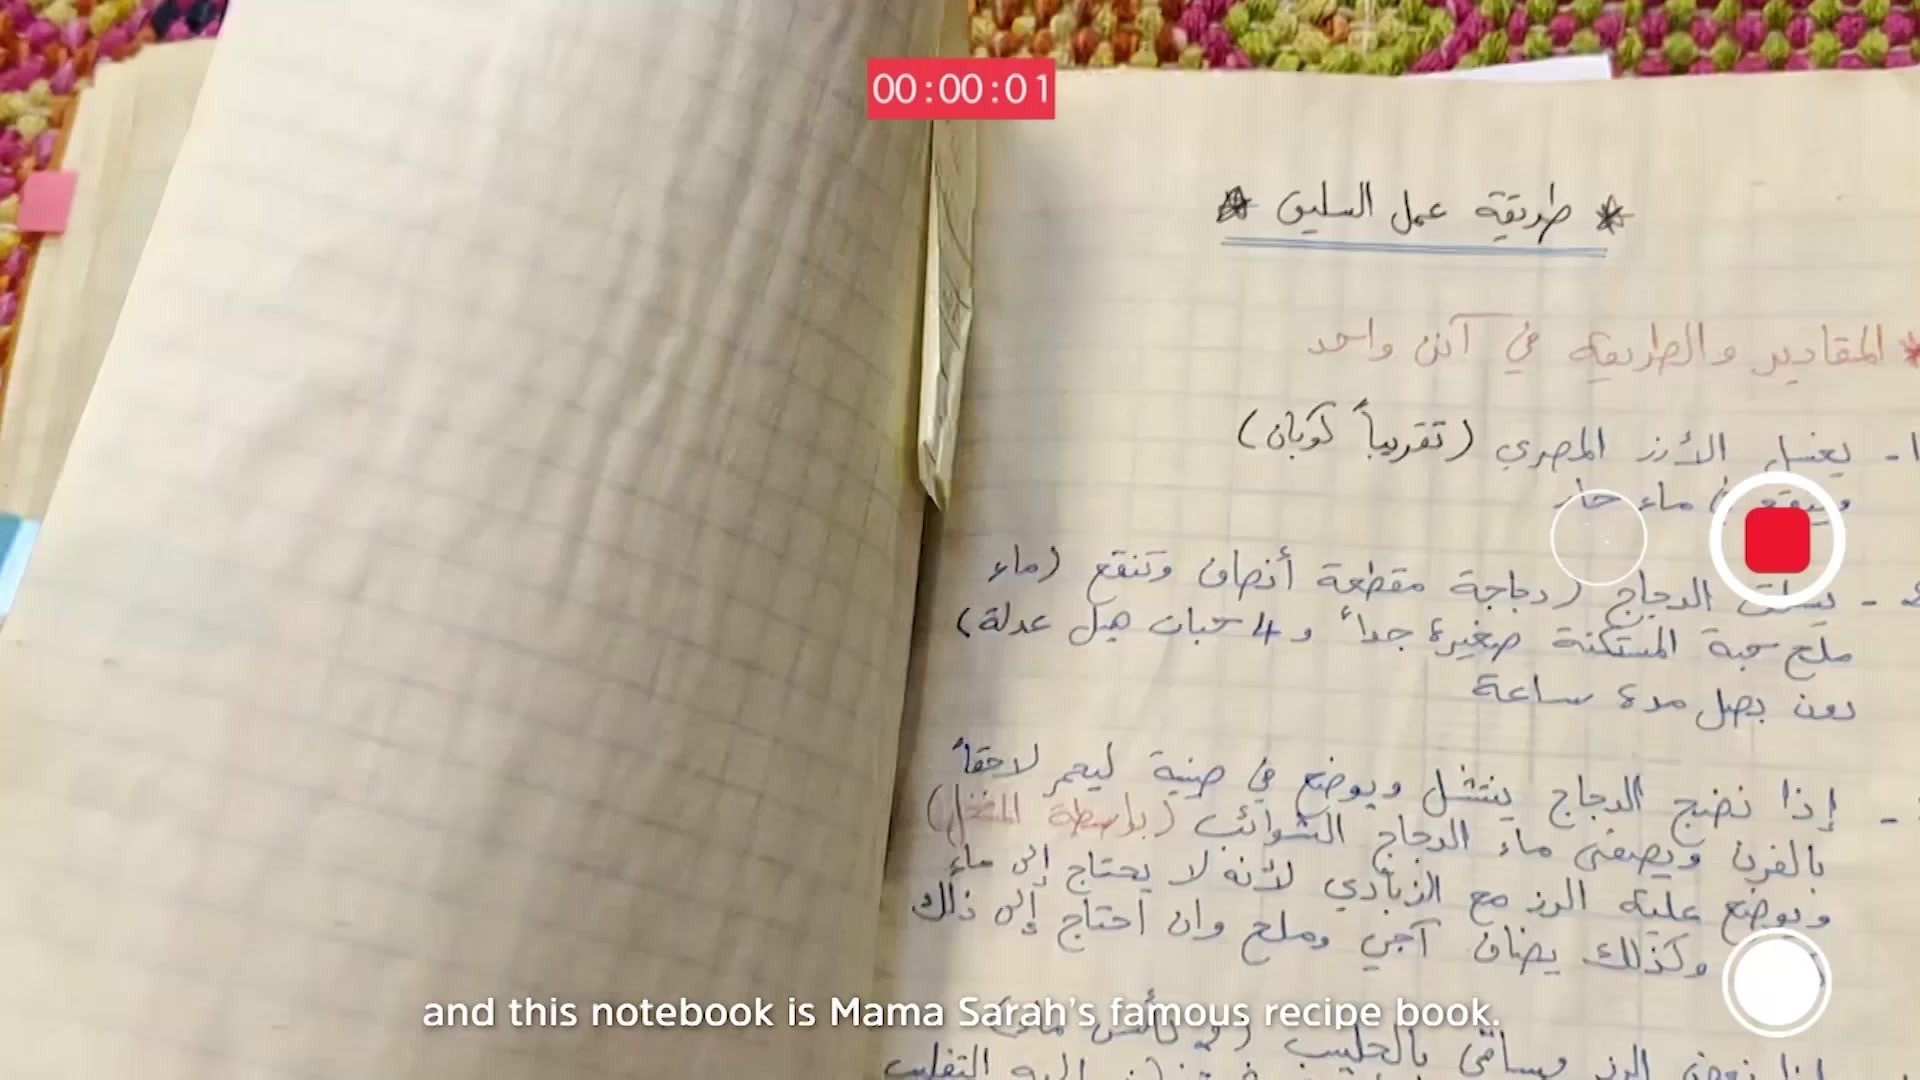 00:00:01
* طريقة عمل السليق *
* المقادير والطريقه في آنن واحد
1- يغسل الأرز المصري (تقريباً كوبان)
ماء حار
- يسلق الدجاج (دجاجة مقطعة أنصاف وتنقع (ماء
ملح حبة المستكنة صغيرة جداً و 4 حبات هيل عدلة)
دون بصل مدة ساعة
- إذا نضج الدجاج ينتشل ويوضع في صنية ليحمر لاحقاً
بالفرن ويصفى ماء الدجاج الشوائب (بواسطة المنخل)
ويوضع عليه الرز مع الزبادي لأنه لا يحتاج إلى ماء
وكذلك يضاف آجي وملح وان احتاج إلى ذلك
and this notebook is Mama Sarah's famous recipe book.
الرز بالحليب